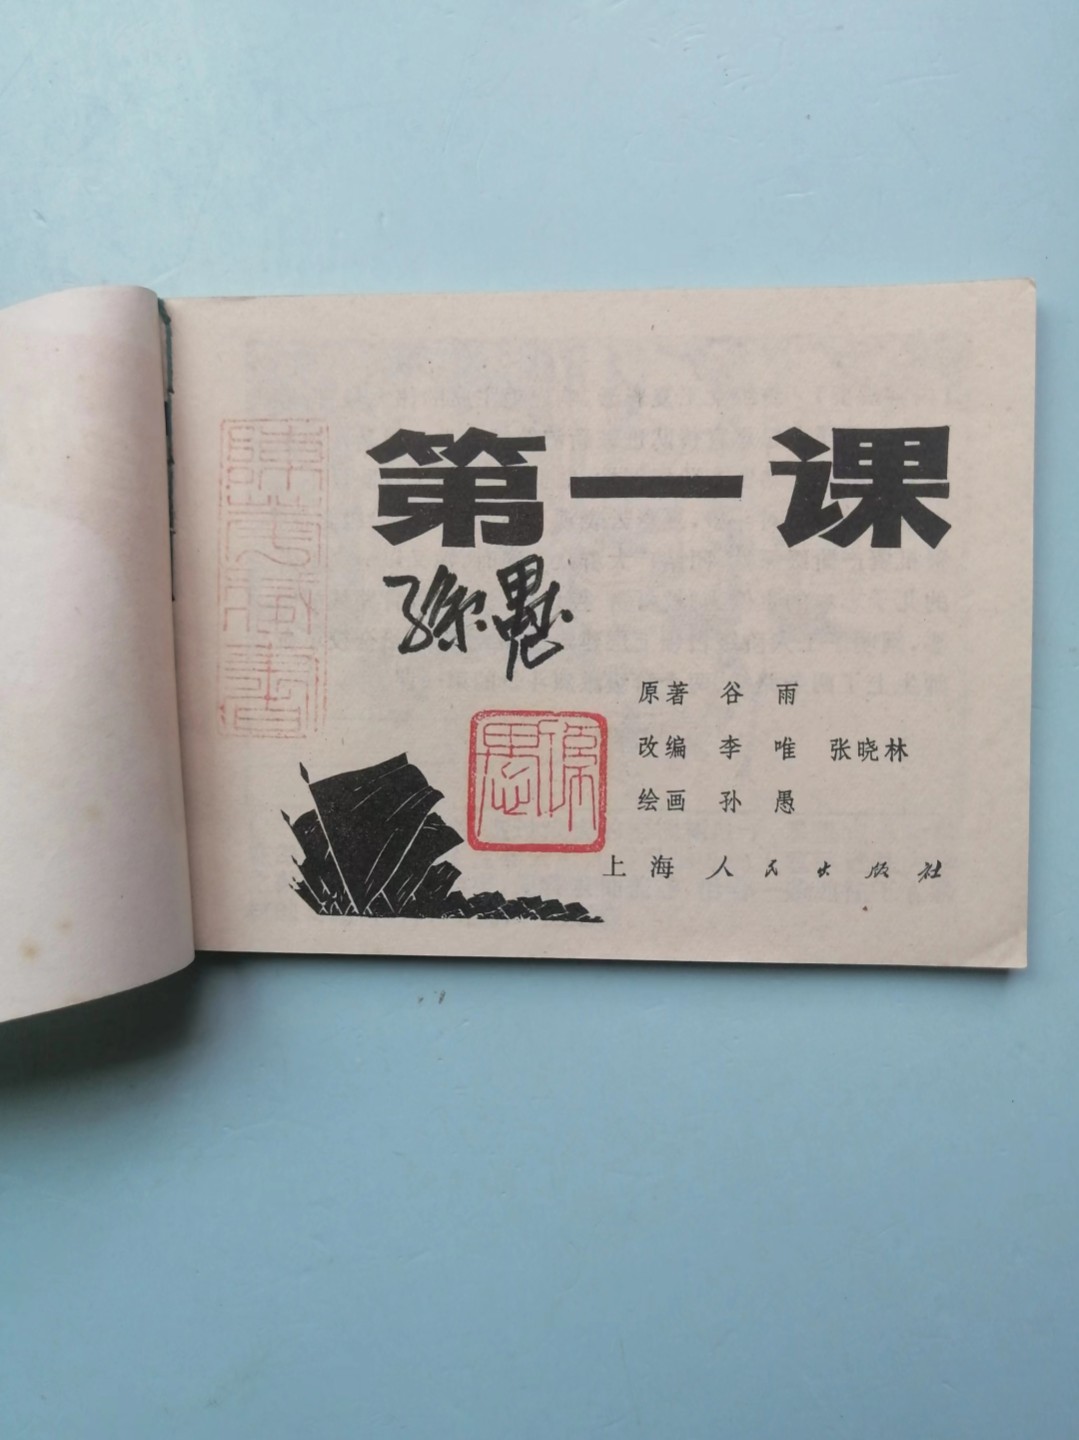 第一课
孫愚
原著 谷雨
改编 李唯 张晓林
绘画 孙愚
上海人民出版社
孫愚